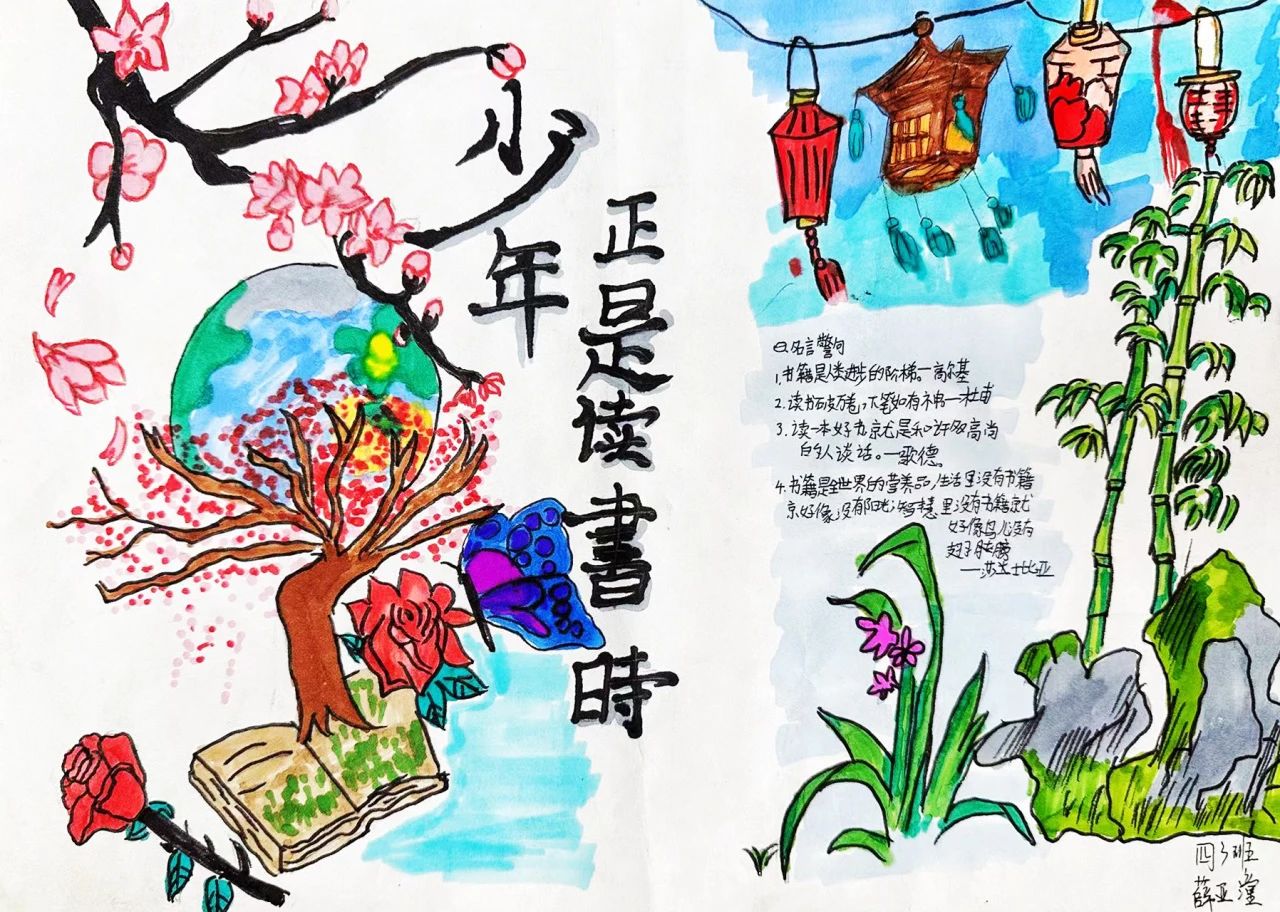 少年
正是读書時
名言警句
1.书籍是人类进步的阶梯。—高尔基
2.读书破万卷,下笔如有神—杜甫
3.读一本好书就是和许多高尚
的人谈话。—歌德。
4.书籍是全世界的营养品,生活里没有书籍
就好像没有阳光;智慧里没有书籍就
好像鸟儿没有
翅膀
—莎士比亚
四 班
薛亚